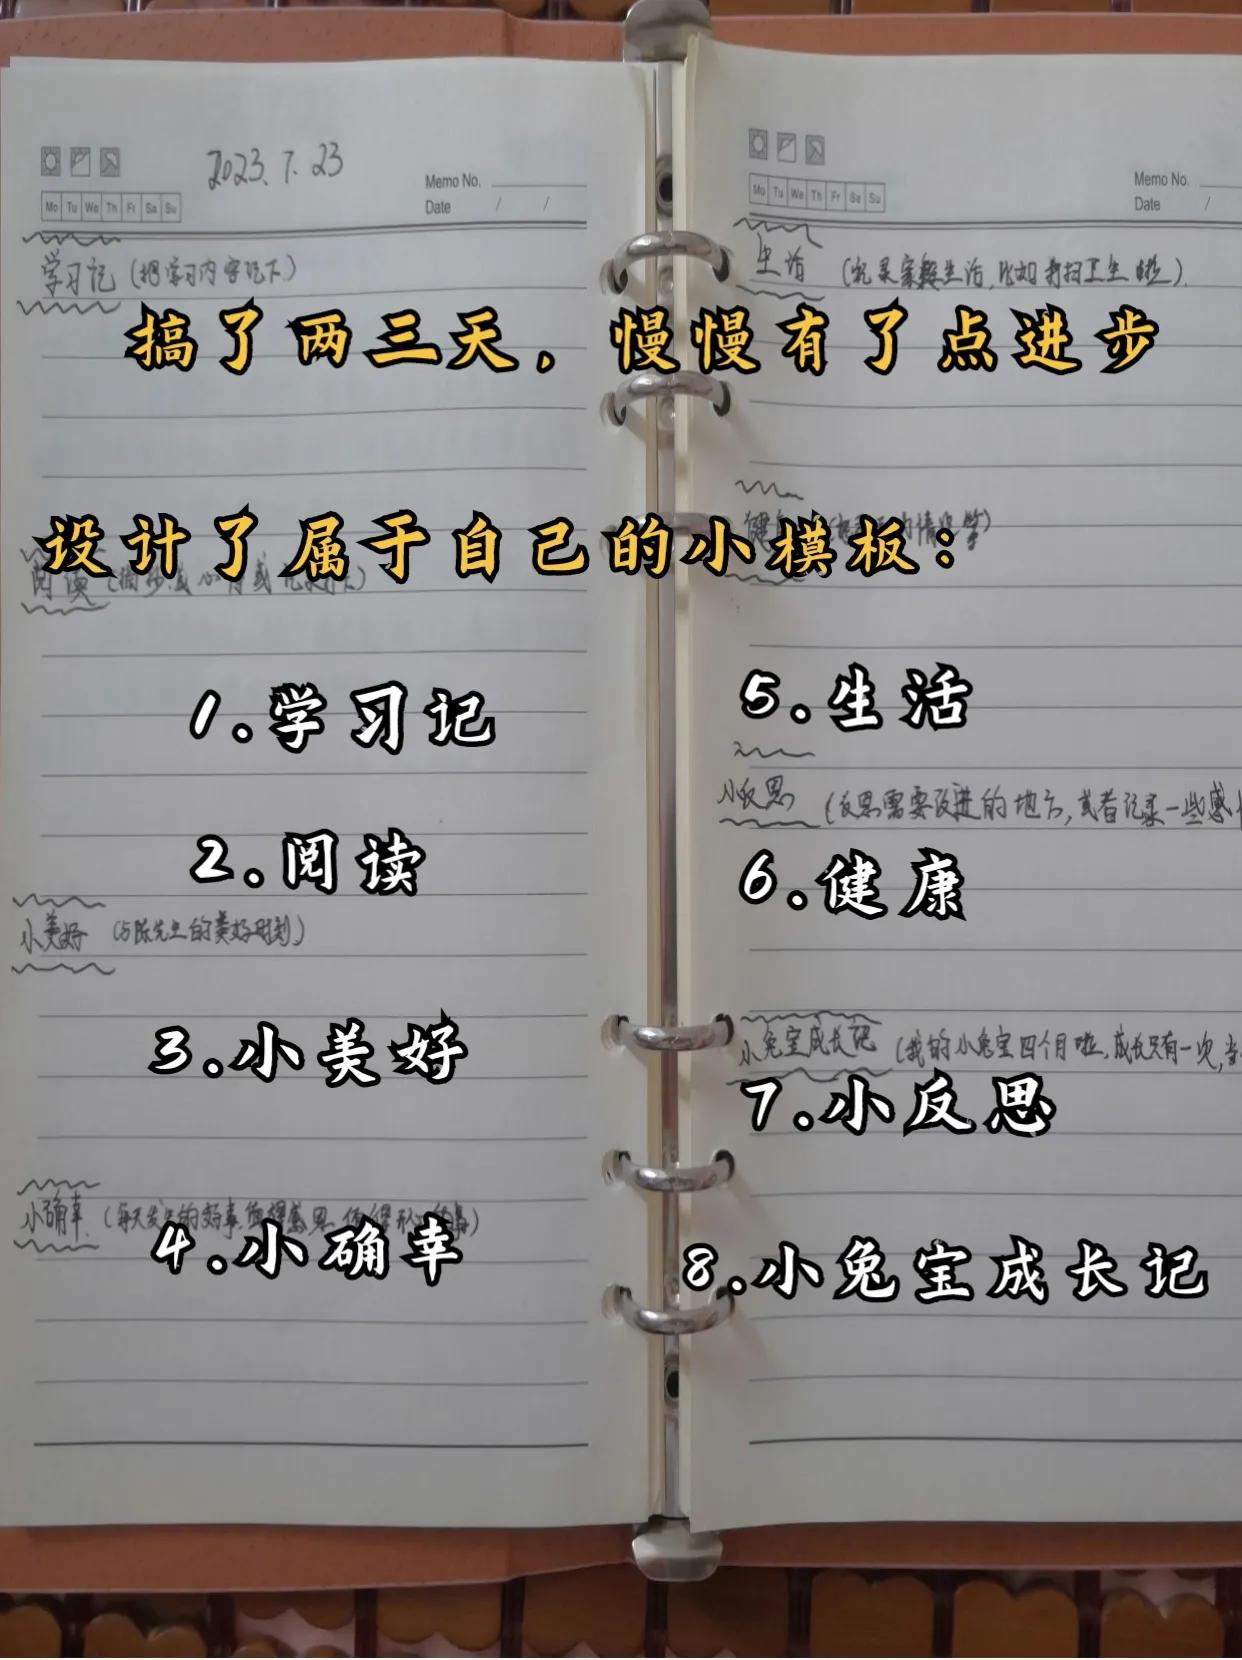 2023.7.23
Memo No.
Mo Tu We Th Fr Sa Su
Date / /
学习记 (把学习内容记下)
搞了两三天，慢慢有了点进步
设计了属于自己的小模板：
阅读
1.学习记
2.阅读
小美好 (与陈先生的美好时刻)
3.小美好
小确幸 (每天发生的好事,值得感恩
4.小确幸
Memo No.
Mo Tu We Th Fr Sa Su
Date /
生活 (记录家庭生活,比如打扫卫生啦)
5.生活
小反思 (反思需要改进的地方,或者记录一些感
6.健康
小兔宝成长记 (我的小兔宝四个月啦,成长只有一次,
7.小反思
8.小兔宝成长记